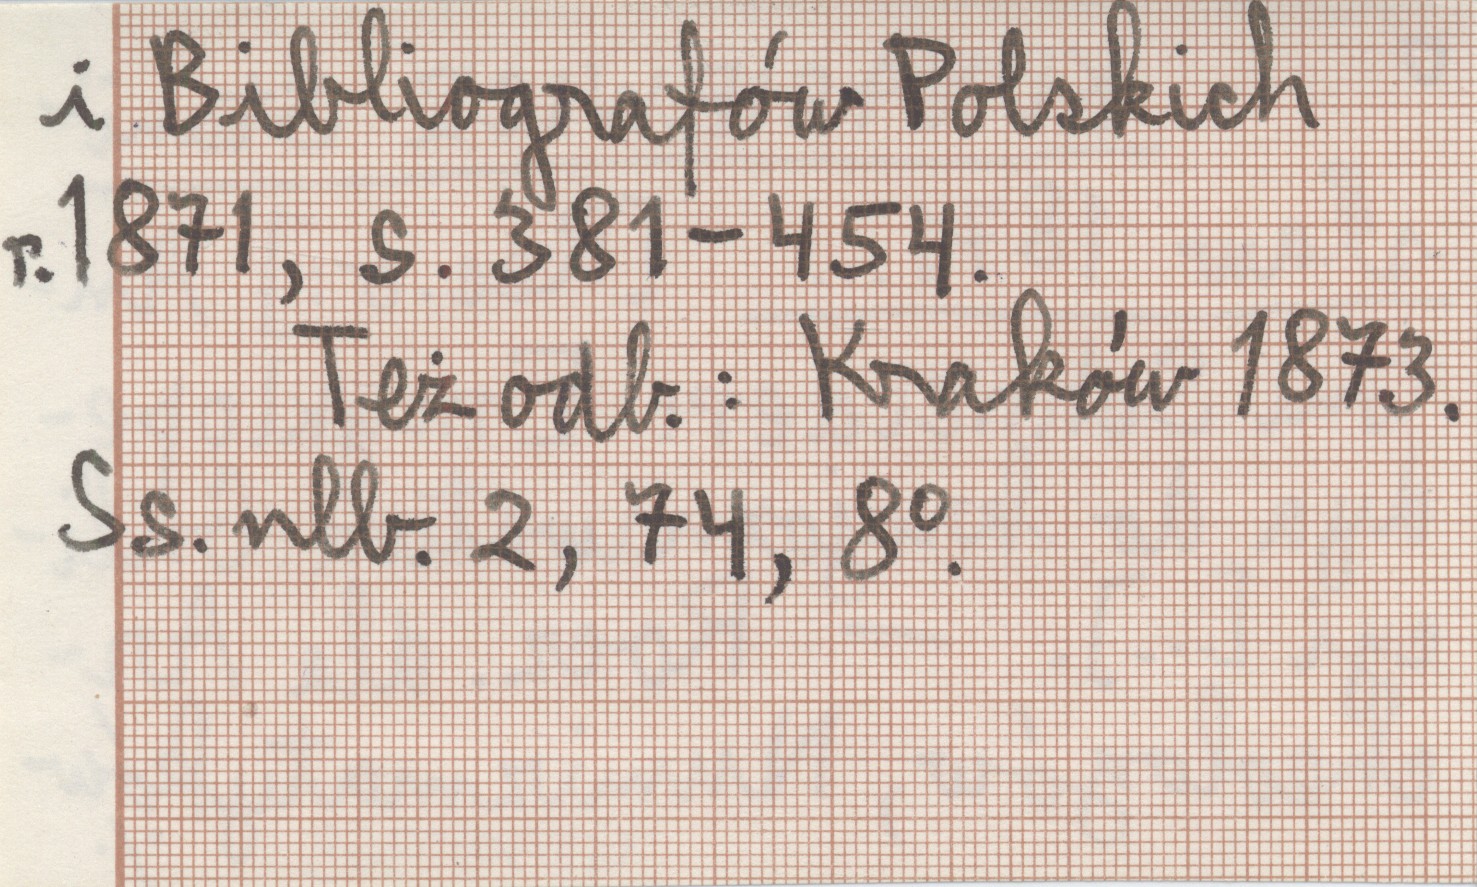 i Bibliografów Polskich
r. 1871, s. 381-454.
Też odb.: Kraków 1873.
Ss. nlb. 2, 74, 8º.